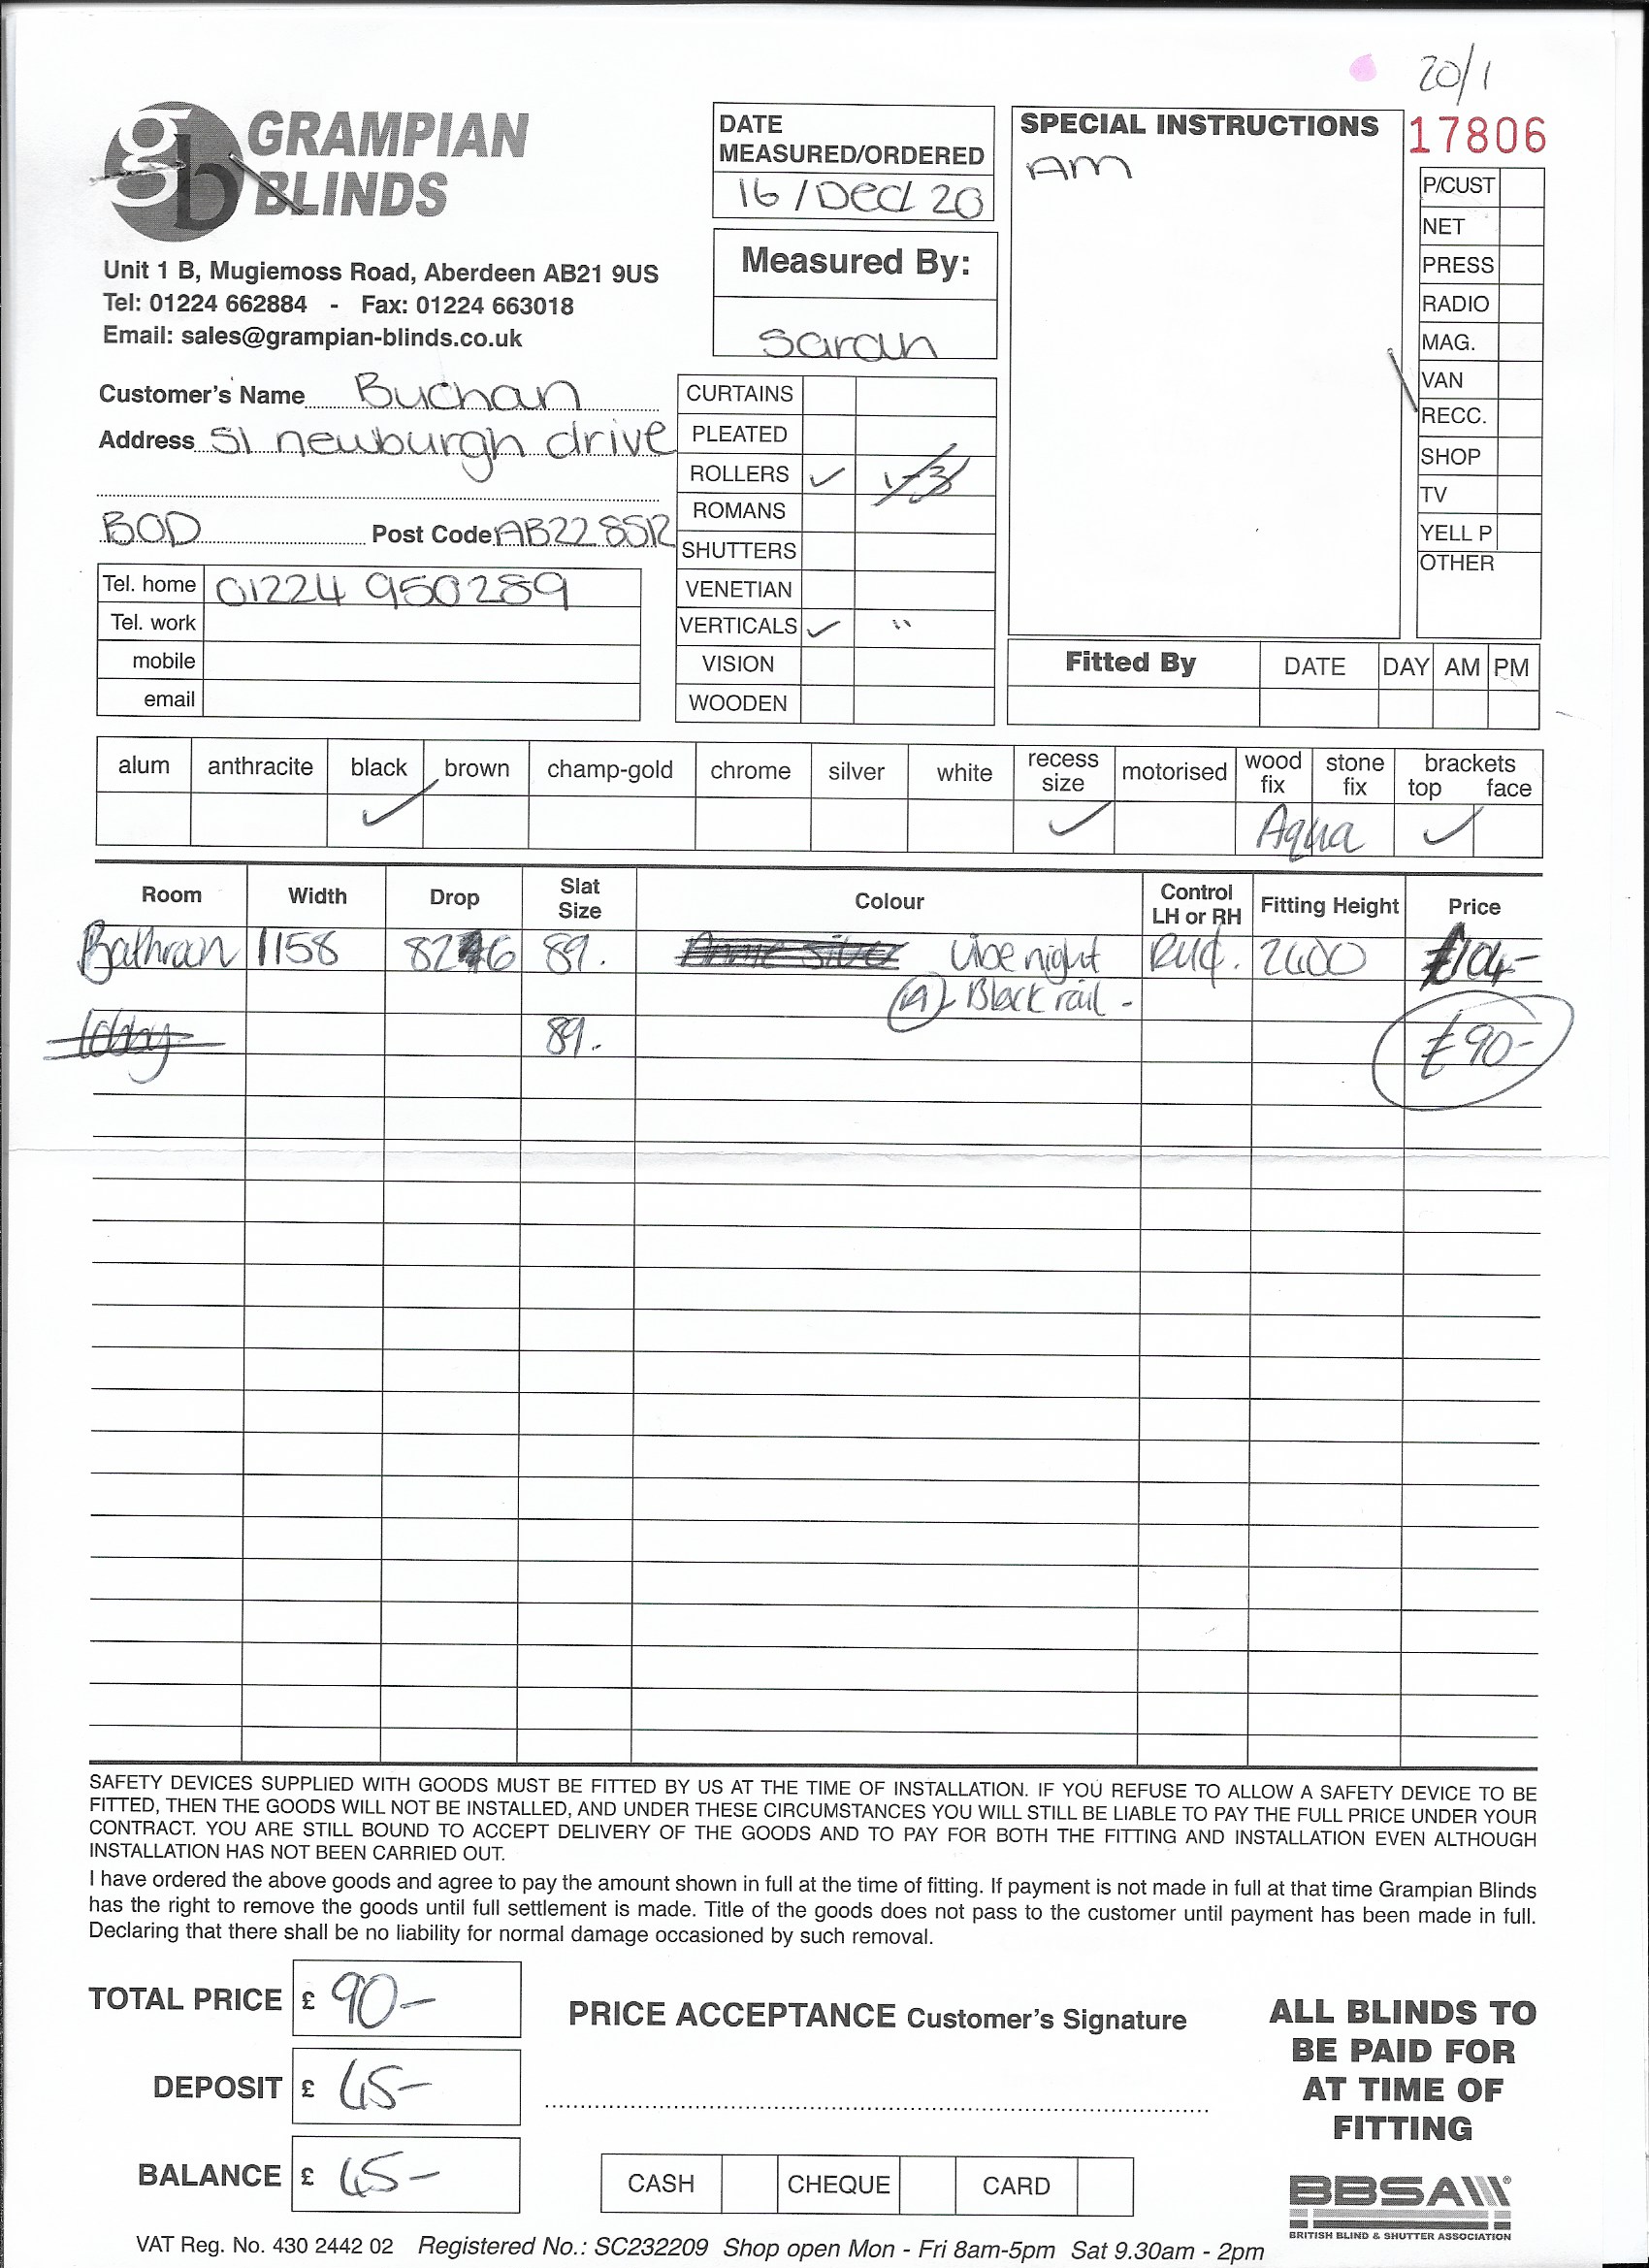 20/1
GRAMPIAN
BLINDS
gb
Unit 1 B, Mugiemoss Road, Aberdeen AB21 9US
Tel: 01224 662884 - Fax: 01224 663018
Email: sales@grampian-blinds.co.uk
DATE
MEASURED/ORDERED
16/Dec/20
Measured By:
Sarah
SPECIAL INSTRUCTIONS
Am
17806
P/CUST
NET
PRESS
RADIO
MAG.
VAN
RECC.
SHOP
TV
YELL P
OTHER
Customer's Name Buchan
Address 51 newburgh drive
BOD Post Code AB22 8SR
Tel. home 01224 950289
Tel. work
mobile
email
CURTAINS
PLEATED
ROLLERS ✓
ROMANS
SHUTTERS
VENETIAN
VERTICALS ✓ "
VISION
WOODEN
Fitted By DATE DAY AM PM
alum anthracite black brown champ-gold chrome silver white recess size motorised wood fix stone fix brackets top face
✓ ✓ Aqua ✓
Room Width Drop Slat Size Colour Control LH or RH Fitting Height Price
1158 89. night 2600 £104-
(A) Black rail -
89. £90-
SAFETY DEVICES SUPPLIED WITH GOODS MUST BE FITTED BY US AT THE TIME OF INSTALLATION. IF YOU REFUSE TO ALLOW A SAFETY DEVICE TO BE
FITTED, THEN THE GOODS WILL NOT BE INSTALLED, AND UNDER THESE CIRCUMSTANCES YOU WILL STILL BE LIABLE TO PAY THE FULL PRICE UNDER YOUR
CONTRACT. YOU ARE STILL BOUND TO ACCEPT DELIVERY OF THE GOODS AND TO PAY FOR BOTH THE FITTING AND INSTALLATION EVEN ALTHOUGH
INSTALLATION HAS NOT BEEN CARRIED OUT.
I have ordered the above goods and agree to pay the amount shown in full at the time of fitting. If payment is not made in full at that time Grampian Blinds
has the right to remove the goods until full settlement is made. Title of the goods does not pass to the customer until payment has been made in full.
Declaring that there shall be no liability for normal damage occasioned by such removal.
TOTAL PRICE £ 90-
DEPOSIT £ 45-
BALANCE £ 45-
PRICE ACCEPTANCE Customer's Signature
CASH CHEQUE CARD
ALL BLINDS TO
BE PAID FOR
AT TIME OF
FITTING
BBSA
BRITISH BLIND & SHUTTER ASSOCIATION
VAT Reg. No. 430 2442 02 Registered No.: SC232209 Shop open Mon - Fri 8am-5pm Sat 9.30am - 2pm